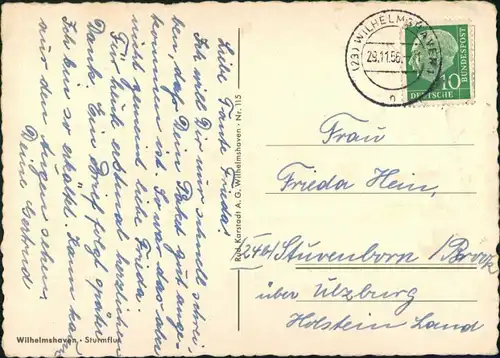 Liebe Tante Frieda!
Ich will Dir nur schnell schrei-
ben, daß Dein Paket gut ange-
kommen ist. So war das aber
nicht gemeint liebe Frieda.
Für heute erstmal herzlichen
Dank. Ein Brief folgt später
Ich bin so erkältet. Kann kaum
aus den Augen sehen.
Deine Gertrud
Wilhelmshaven - Sturmflut
Rud. Karstadt A. G. Wilhelmshaven · Nr. 115
(23) WILHELMSHAVEN 1
29.11.56
n
10
DEUTSCHE BUNDESPOST
Frau
Frieda Hein,
(24b) Stuvenborn / Brook
über Ulzburg
Holstein Land